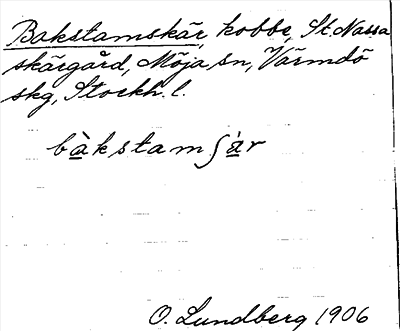 Bakstamskär, kobbe, St. Nassa
skärgård, Möja sn, Värmdö
skg, Stockh. l.
bàkstamʃàr
O. Lundberg 1906